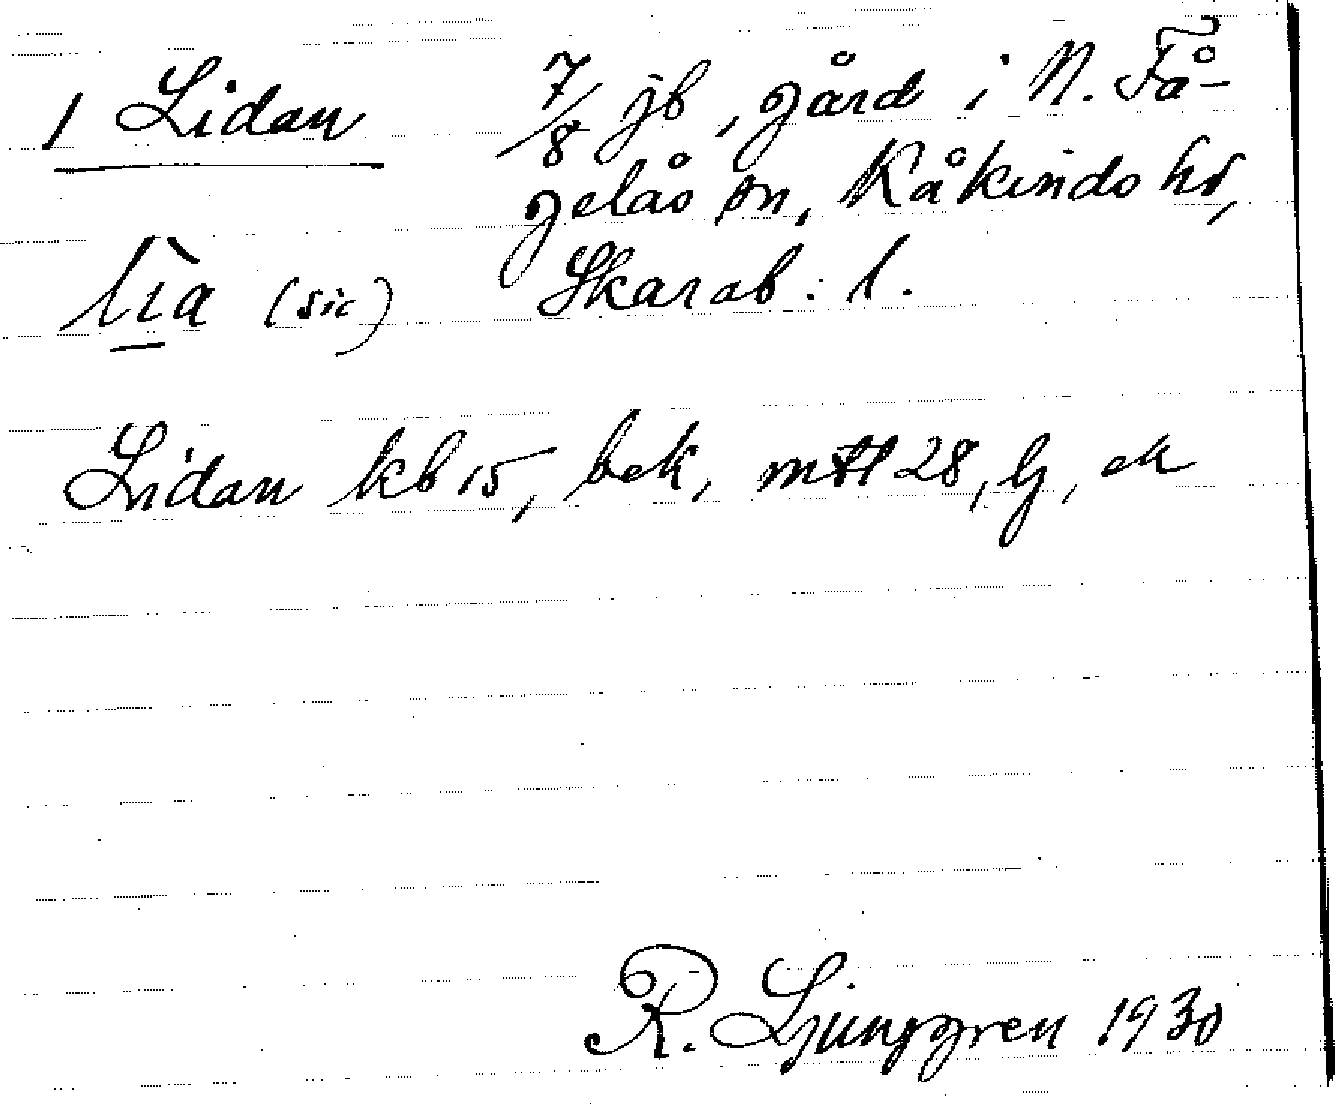 1 Lidan 7/8 jb, gård i N. Få-
gelås sn, Kåkinds hd,
lìa (sic) Skarab. l.
Lidan kb 15, bek, mtl 28, lj, ek
R. Ljunggren 1930